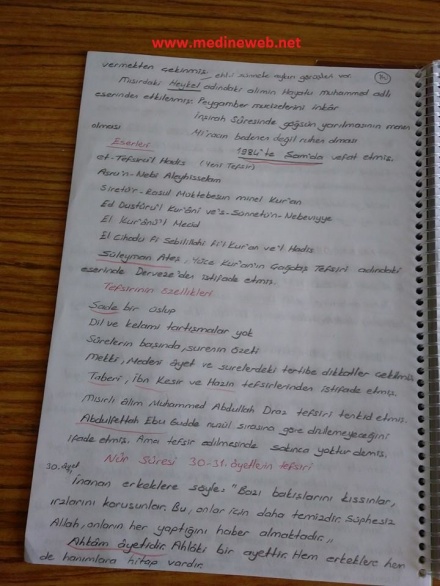 www.medineweb.net
vermekten çekinmiş. ehli sünnete aykırı görüşleri var.
Mısırdaki Heykel adındaki alimin Hayatu Muhammed adlı
eserinden etkilenmiş. Peygamber mucizelerini inkâr
İnşirah Sûresinde göğsün yarılmasının manevi
olması Mi'racın bedenen değil ruhen olması
Eserleri 1984'te Şam'da vefat etmiş.
et-Tefsiru'l Hadis (Yeni Tefsir)
Asru'n-Nebi Aleyhisselam
Siretü'r-Rasul Muktebesun minel Kur'an
Ed Dustûru'l Kur'ânî ve's-Sünnetü'n-Nebeviyye
El Kur'ânü'l Mecid
El Cihadu fi Sebilillahi fi'l Kur'an ve'l Hadis
Süleyman Ateş, Yüce Kur'an'ın Çağdaş Tefsiri adındaki
eserinde Derveze'den istifade etmiş.
Tefsirinin Özellikleri
Sade bir üslup
Dil ve kelami tartışmalar yok
Sûrelerin başında, surenin özeti
Mekki, Medeni âyet ve surelerdeki tertibe dikkatler çekilmiş
Taberi, İbn Kesir ve Hazin tefsirlerinden istifade etmiş.
Mısırlı âlim Muhammed Abdullah Draz tefsiri tenkid etmiş.
Abdulfettah Ebu Gudde nüzûl sırasına göre dizilemeyeceğini
ifade etmiş. Ama tefsir edilmesinde sakınca yoktur demiş.
Nûr Sûresi 30-31. âyetlerin tefsiri
30. âyet
İnanan erkeklere söyle: "Bazı bakışlarını kıssınlar,
ırzlarını korusunlar. Bu, onlar için daha temizdir. Şüphesiz
Allah, onların her yaptığını haber almaktadır."
Ahkâm âyetidir. Ahlâki bir ayettir. Hem erkeklere hem
de hanımlara hitap vardır.